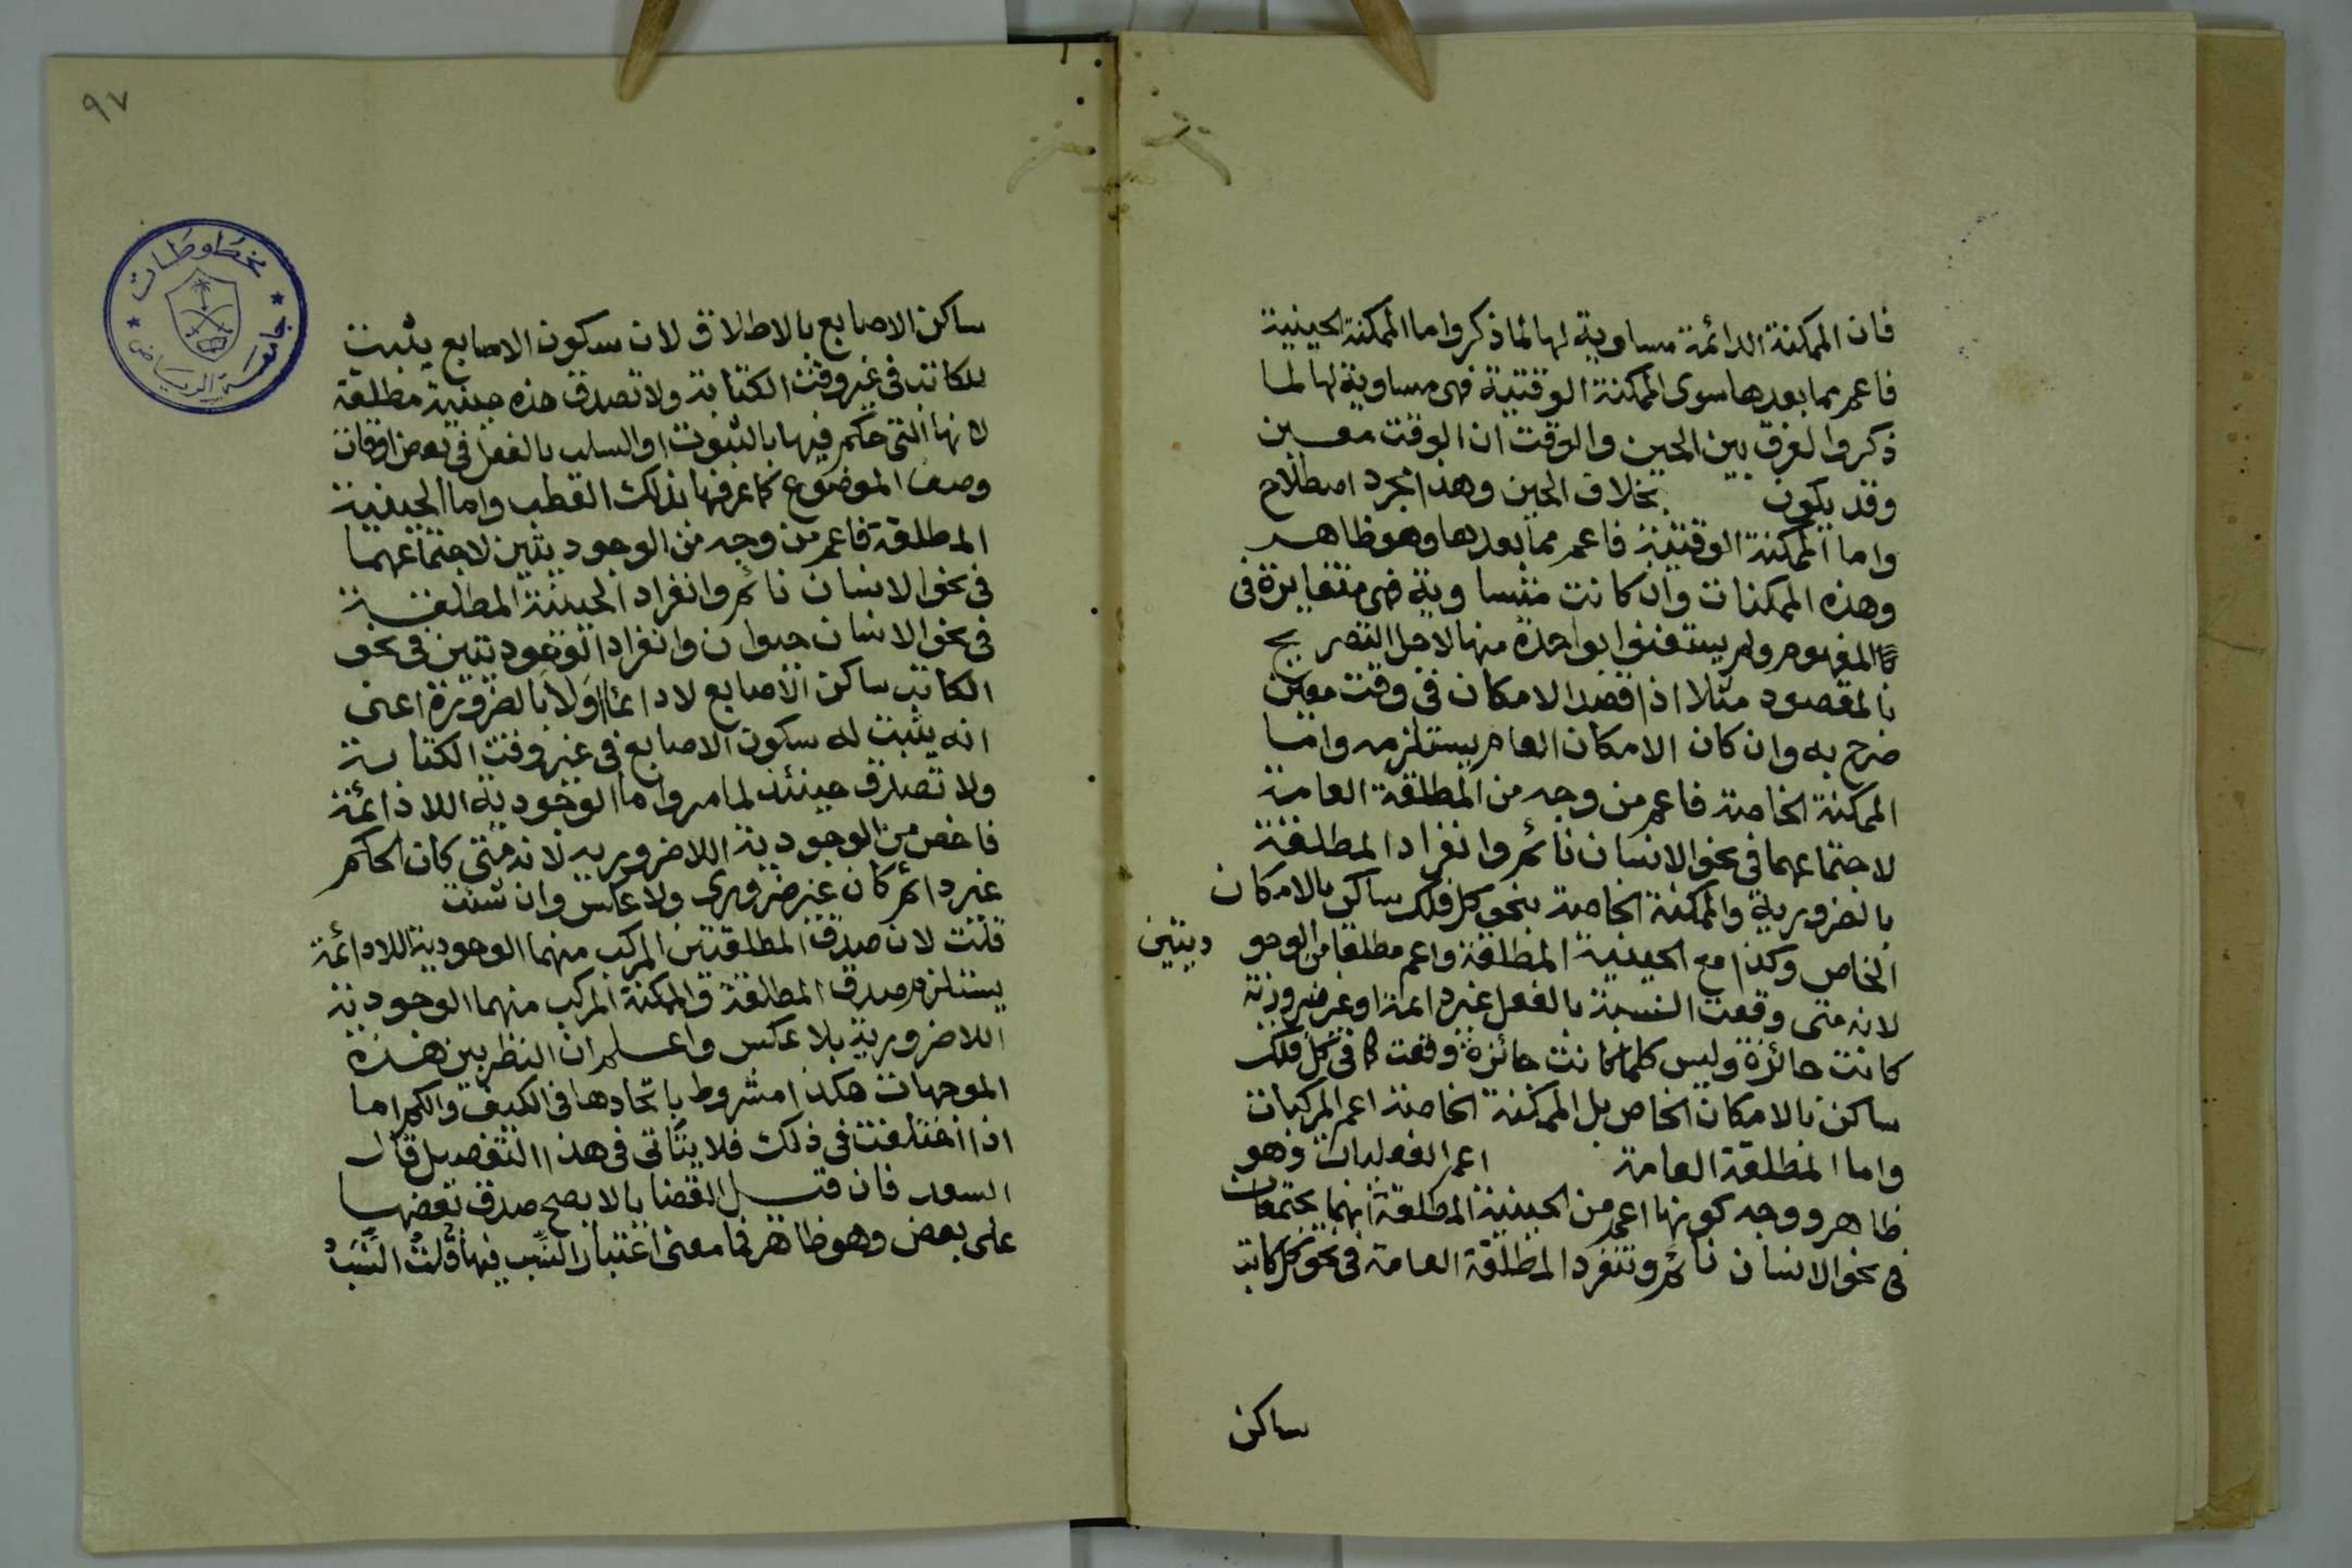 فان الممكنة الدائمة مساوية لها لما ذكروا ما الممكنة الحينية
فاعم مما بعدها سوى الممكنة الوقتية فهى مساوية لها لما
ذكروا لفرق بين الحين والوقت ان الوقت معين
وقد يكون بخلاف الحين وهذا مجرد اصطلاح
واما الممكنة الوقتية فاعم مما بعدها وهو ظاهر
وهذه الممكنات وان كانت متساوية فهى متغايرة فى
المفهوم ولم يستغنوا بواحدة منها لاجل التصريح
بالمقصود مثلا اذا قصد الامكان فى وقت معين
صرح به وان كان الامكان العام يستلزمه واما
الممكنة الخاصة فاعم من وجه من المطلقة العامة
لاجتماعهما فى نحو الانسان نائم وانفراد المطلقة
بالضرورية والممكنة الخاصة بنحو كل فلك ساكن بالامكان
الخاص وكذا مع الحينية المطلقة واعم مطلقا من الوجو ديتين
لانه متى وقعت النسبة بالفعل غير دائمة او غير ضرورية
كانت جائزة وليس كلما كانت جائزة وقعت كما فى كل فلك
ساكن بالامكان الخاص بل الممكنة الخاصة اعم المركبات
واما المطلقة العامة اعم الفعليات وهو
ظاهر ووجه كونها اعم من الحينية المطلقة انهما يجتمعان
فى نحو الانسان نائم وتنفرد المطلقة العامة فى نحو كل كاتب
ساكن
٩٧
مخطوطات
جامعة الرياض
ساكن الاصابع بالاطلاق لان سكون الاصابع يثبت
للكاتب فى غير وقت الكتابة ولا تصدق هذه حينية مطلقة
لانها التى حكم فيها بالثبوت او السلب بالفعل فى بعض اوقات
وصف الموضوع كما عرفها بذلك القطب واما الحينية
المطلقة فاعم من وجه من الوجوديتين لاجتماعهما
فى نحو الانسان نائم وانفراد الحينية المطلقة
فى نحو الانسان حيوان وانفراد الوجوديتين فى نحو
الكاتب ساكن الاصابع لا دائما او لا بالضرورة اعنى
انه يثبت له سكون الاصابع فى غير وقت الكتابة
ولا تصدق حينئذ لما مر واما الوجودية اللادائمة
فاخص من الوجودية اللاضرورية لانه متى كان الحكم
غير دائم كان غير ضرورى ولا عكس وان شئت
قلت لان صدق المطلقتين المركب منهما الوجودية اللادائمة
يستلزم صدق المطلقة والممكنة المركب منهما الوجودية
اللاضرورية بلا عكس واعلم ان النظر بين هذه
الموجهات هكذا مشروط باتحادها فى الكيف والكم اما
اذا اختلفت فى ذلك فلا يتأتى فى هذا التفصيل قال
السعد فان قيل القضايا لا يصح صدق بعضها
على بعض وهو ظاهر فما معنى اعتبار النسب فيها قلت النسب